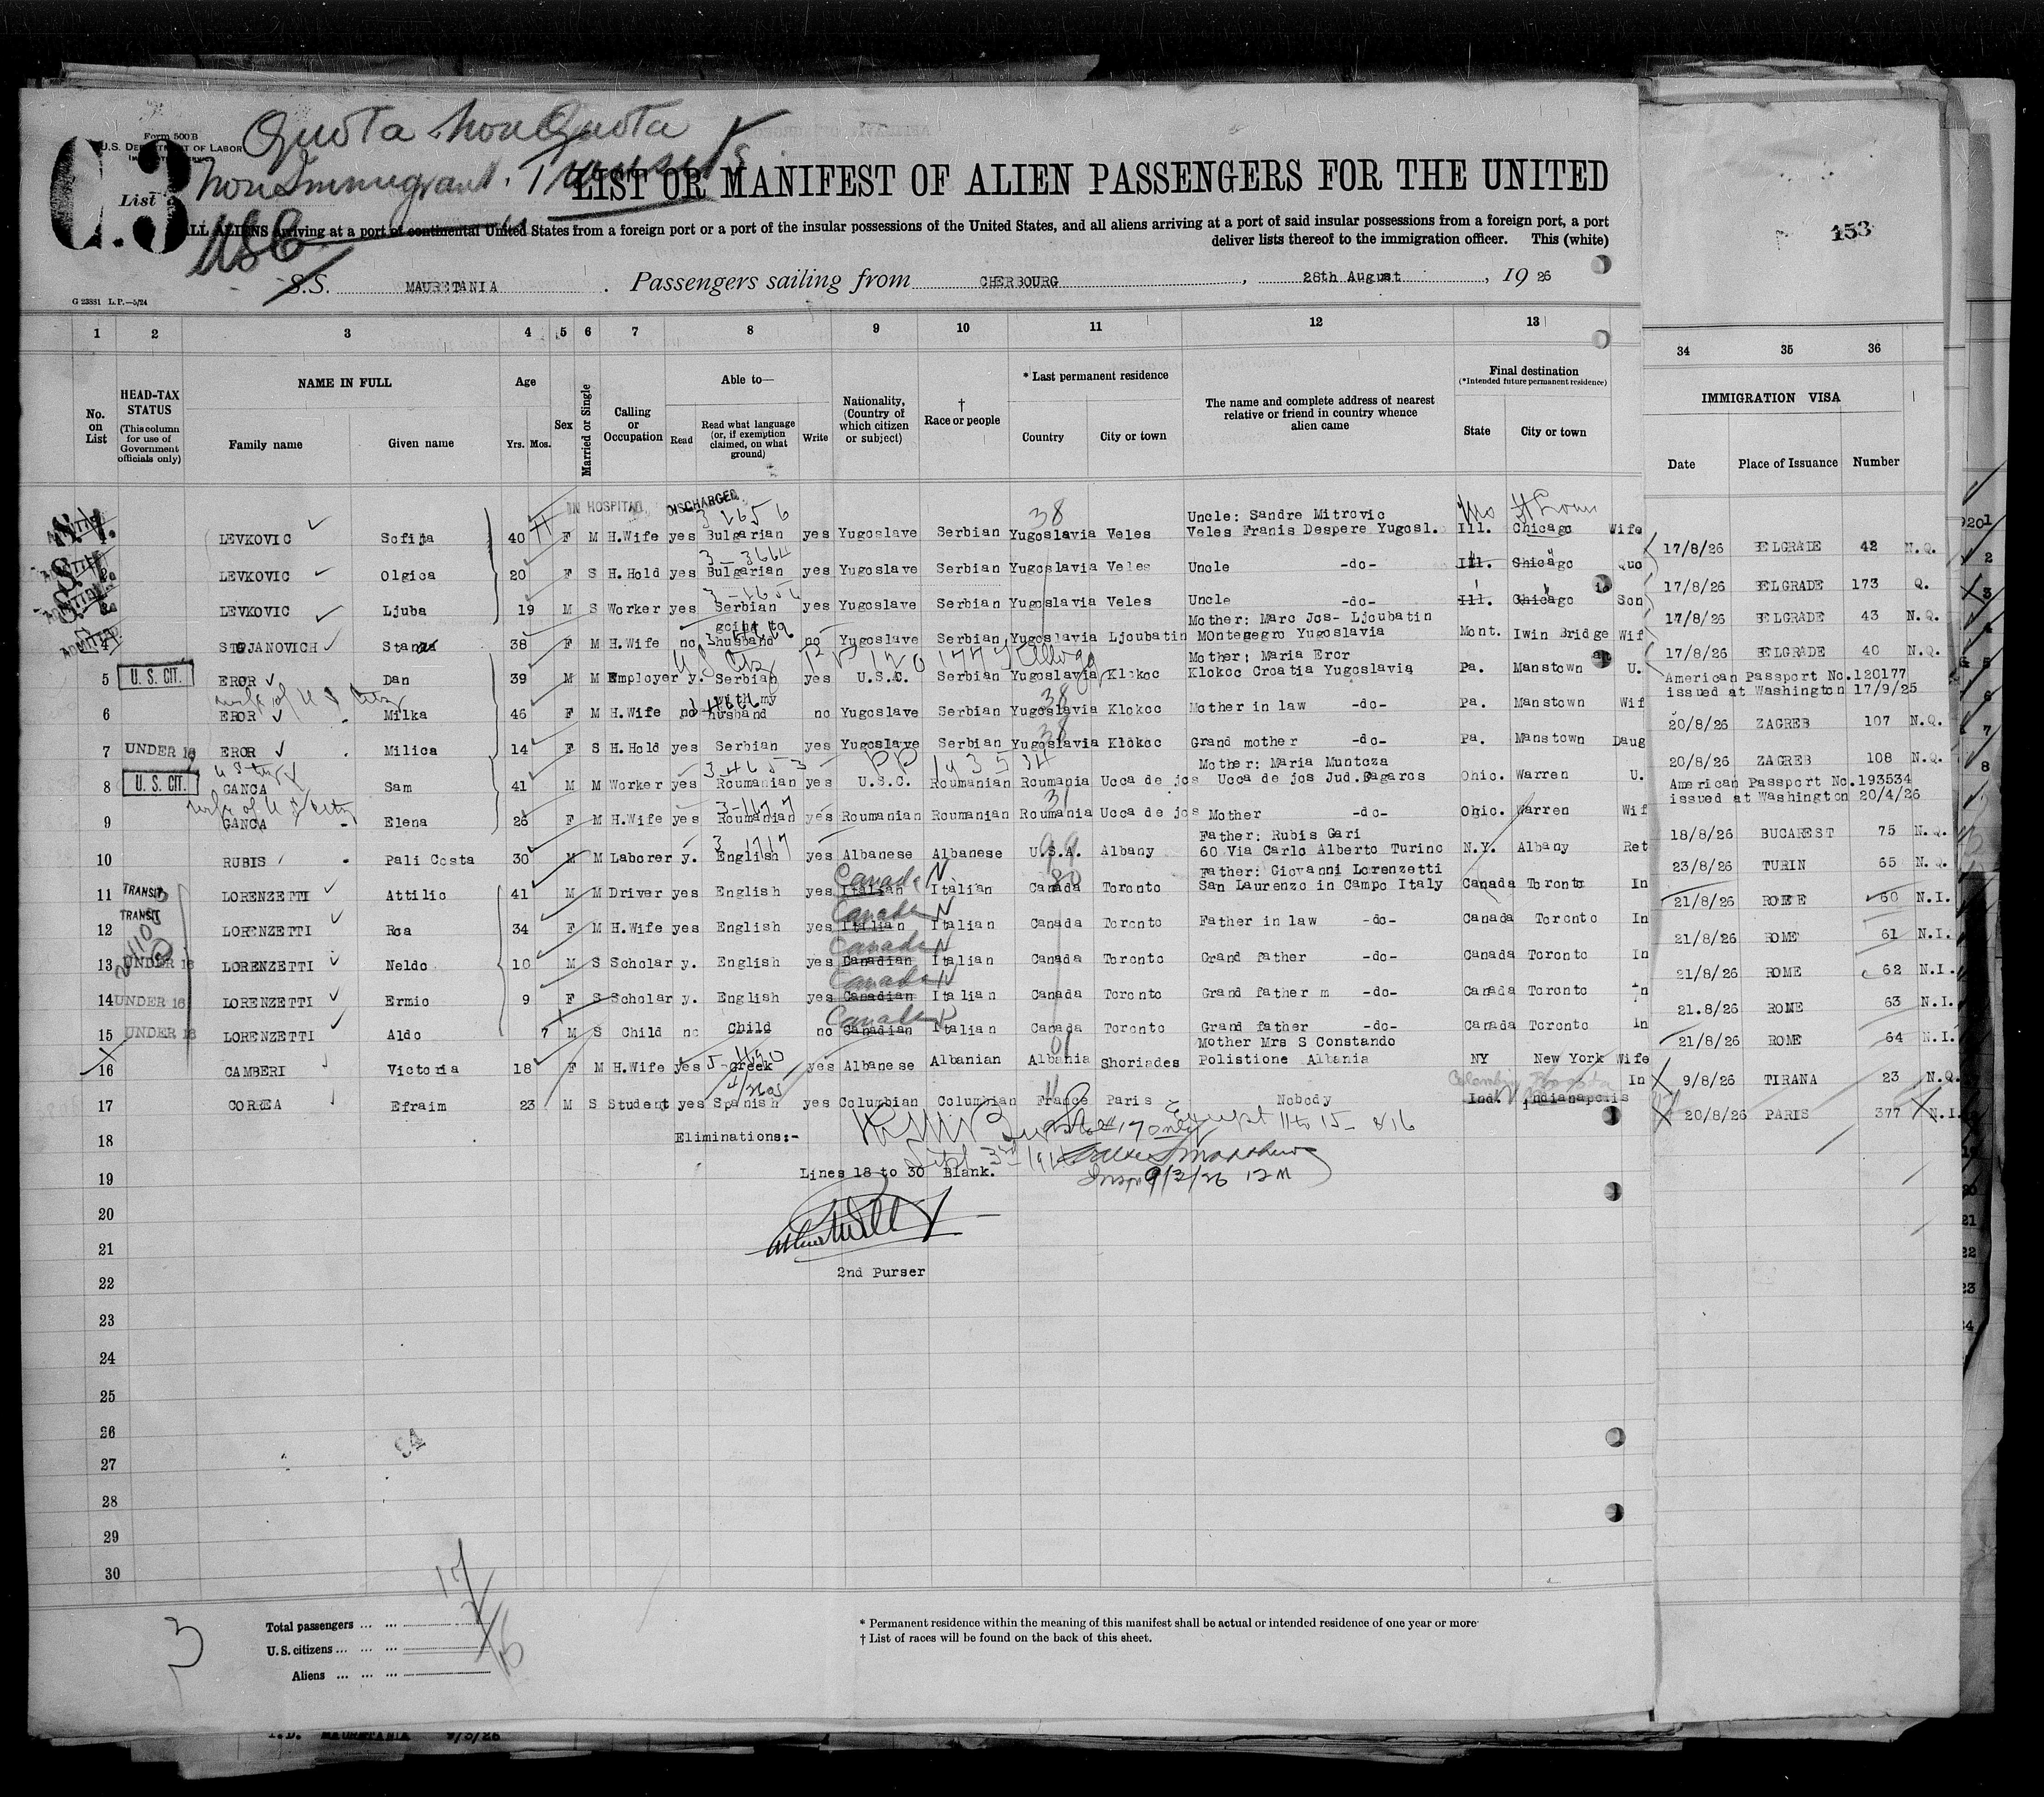 Quota Non Quota
Form 500 B
U.S. DEPARTMENT OF LABOR
Non Immigrant. Transits
C.3
List
USC
LIST OR MANIFEST OF ALIEN PASSENGERS FOR THE UNITED
ALL ALIENS arriving at a port of continental United States from a foreign port or a port of the insular possessions of the United States, and all aliens arriving at a port of said insular possessions from a foreign port, a port
deliver lists thereof to the immigration officer. This (white)
153
S.S. MAURETANIA . Passengers sailing from CHERBOURG , 28th August , 19 26
G 23881 L.P.—5/24
1 2 3 4 5 6 7 8 9 10 11 12 13 34 35 36
No. on List
HEAD-TAX STATUS
(This column for use of Government officials only)
NAME IN FULL
Family name Given name
Age
Yrs. Mos.
Sex
Married or Single
Calling or Occupation
Able to—
Read
Read what language (or, if exemption claimed, on what ground)
Write
Nationality, (Country of which citizen or subject)
† Race or people
* Last permanent residence
Country City or town
The name and complete address of nearest relative or friend in country whence alien came
Final destination
(*Intended future permanent residence)
State City or town
IMMIGRATION VISA
Date Place of Issuance Number
IN HOSPITAL DISCHARGED
38
Uncle: Sandre Mitrovic
LEVKOVIC Sofija 40 F M H.Wife yes Bulgarian yes Yugoslave Serbian Yugoslavia Veles Veles Franis Despere Yugosl. Ill. Chicago Wife 17/8/26 BELGRADE 42 N.Q.
LEVKOVIC Olgica 20 F S H.Hold yes Bulgarian yes Yugoslave Serbian Yugoslavia Veles Uncle -do- Ill. Chicago Quo 17/8/26 BELGRADE 173 Q.
LEVKOVIC Ljuba 19 M S Worker yes Serbian yes Yugoslave Serbian Yugoslavia Veles Uncle -do- Ill. Chicago Son 17/8/26 BELGRADE 43 N.Q.
going to Mother: Marc Jos- Ljoubatin
4 STOJANOVICH Stana 38 F M H.Wife no husband no Yugoslave Serbian Yugoslavia Ljoubatin Montegegro Yugoslavia Mont. Iwin Bridge Wif 17/8/26 BELGRADE 40 N.Q.
U S Ctz PP 120177 Mother: Maria Eror
5 U. S. CIT. EROR Dan 39 M M Employer y. Serbian yes U.S.C. Serbian Yugoslavia Klokoc Klokoc Croatia Yugoslavia Pa. Manstown U. American Passport No.120177
issued at Washington 17/9/25
wife of U S Ctz with my 38
6 EROR Milka 46 F M H.Wife no husband no Yugoslave Serbian Yugoslavia Klokoc Mother in law -do- Pa. Manstown Wif 20/8/26 ZAGREB 107 N.Q.
38
7 UNDER 16 EROR Milica 14 F S H.Hold yes Serbian yes Yugoslave Serbian Yugoslavia Klokoc Grand mother -do- Pa. Manstown Daug 20/8/26 ZAGREB 108 N.Q.
PP 193534 Mother: Maria Muntoza
8 U. S. CIT. GANCA Sam 41 M M Worker yes Roumanian yes U.S.C. Roumanian Roumania Ucca de jos Ucca de jos Jud.Fagaros Ohio. Warren U. American Passport No.193534
issued at Washington 20/4/26
wife of U S Citz 31
9 GANCA Elena 26 F M H.Wife yes Roumanian yes Roumanian Roumanian Roumania Ucca de jos Mother -do- Ohio. Warren Wif 18/8/26 BUCAREST 75 N.Q.
3 1717 99 Father: Rubis Gari
10 RUBIS Pali Costa 30 M M Laborer y. English yes Albanese Albanese U.S.A. Albany 60 Via Carlo Alberto Turino N.Y. Albany Ret 23/8/26 TURIN 65 N.Q.
Canada 80 Father: Giovanni Lorenzetti
11 TRANSIT LORENZETTI Attilio 41 M M Driver yes English yes Italian Italian Canada Toronto San Laurenzo in Campo Italy Canada Toronto In 21/8/26 ROME 60 N.I.
Canada
12 TRANSIT LORENZETTI Rca 34 F M H.Wife yes English yes Italian Italian Canada Toronto Father in law -do- Canada Toronto In 21/8/26 ROME 61 N.I.
Canada
13 UNDER 16 LORENZETTI Neldo 10 M S Scholar y. English yes Canadian Italian Canada Toronto Grand father -do- Canada Toronto In 21/8/26 ROME 62 N.I.
Canada
14 UNDER 16 LORENZETTI Ermic 9 F S Scholar y. English yes Canadian Italian Canada Toronto Grand father m -do- Canada Toronto In 21.8/26 ROME 63 N.I.
Canada
15 UNDER 16 LORENZETTI Aldo 7 M S Child no Child no Canadian Italian Canada Toronto Grand father -do- Canada Toronto In 21/8/26 ROME 64 N.I.
Mother Mrs S Constando
16 CAMBERI Victoria 18 F M H.Wife yes Greek yes Albanese Albanian Albania Shoriades Polistione Albania NY New York Wife 9/8/26 TIRANA 23 N.Q.
Colombia Bogota In
17 CORREA Efraim 23 M S Student yes Spanish yes Columbian Columbian France Paris Nobody Ind. Indianapolis 20/8/26 PARIS 377 N.I.
18 Eliminations:-
Except 11 to 15 - & 16
19 Lines 18 to 30 Blank.
9/3/26 12 M
20
21
22 2nd Purser
23
24
25
26
27
28
29
30
94
17
Total passengers ... ...
U.S. citizens ... ... ...
Aliens ... ... ...
3
* Permanent residence within the meaning of this manifest shall be actual or intended residence of one year or more
† List of races will be found on the back of this sheet.
MAURETANIA 9/3/26